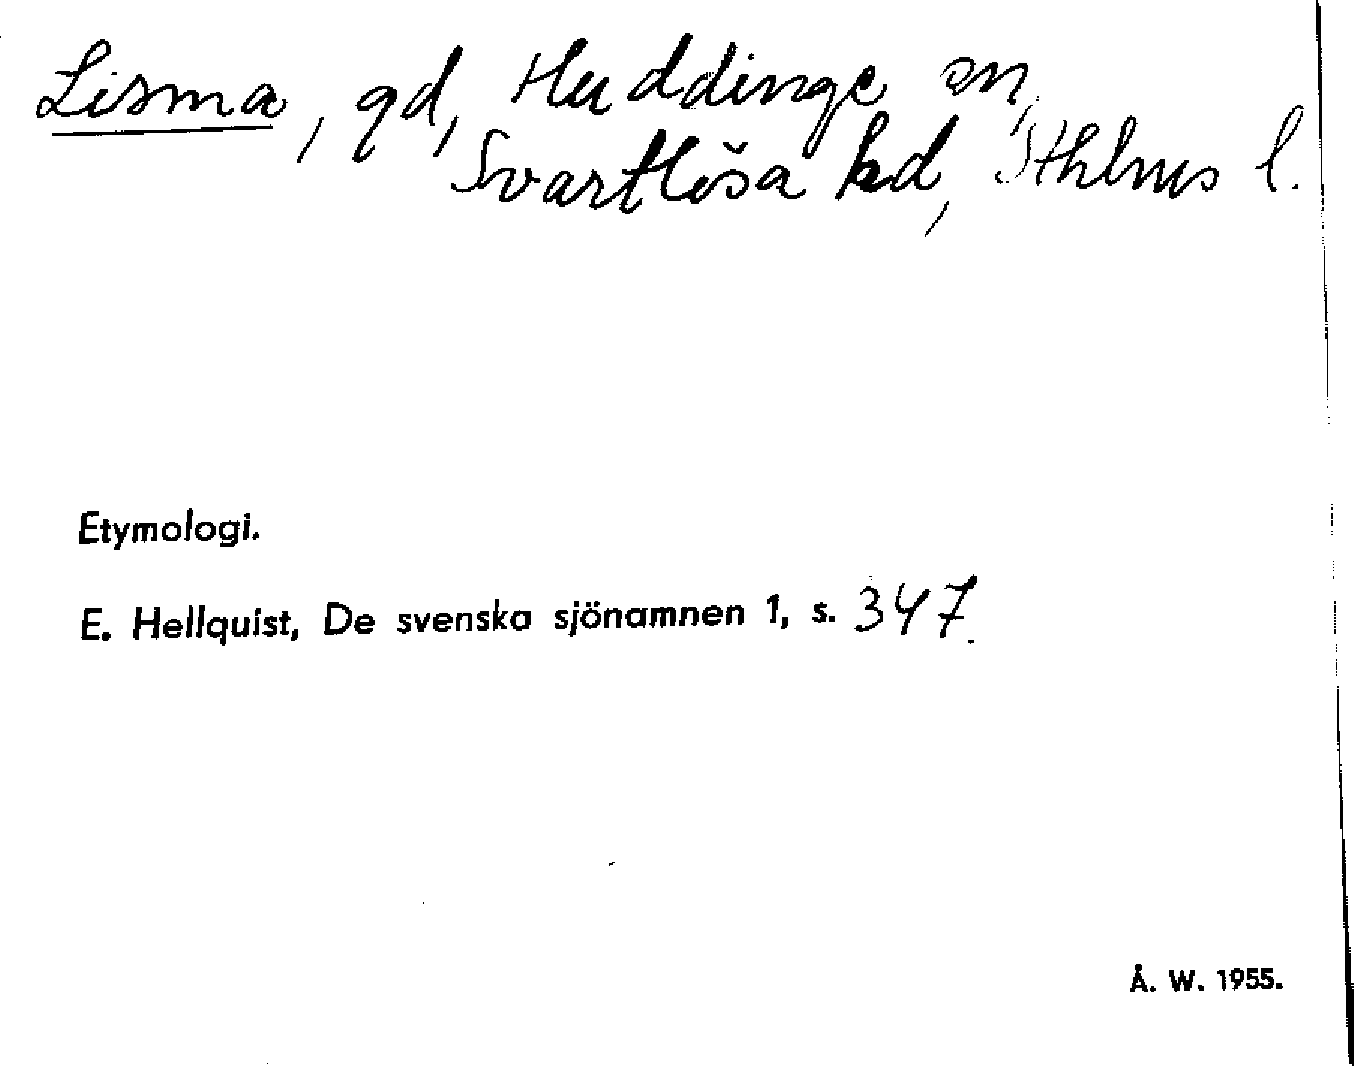 Lisma, gd, Huddinge sn,
Svartlösa hd, Sthlms l.
Etymologi.
E. Hellquist, De svenska sjönamnen 1, s. 347.
Å. W. 1955.